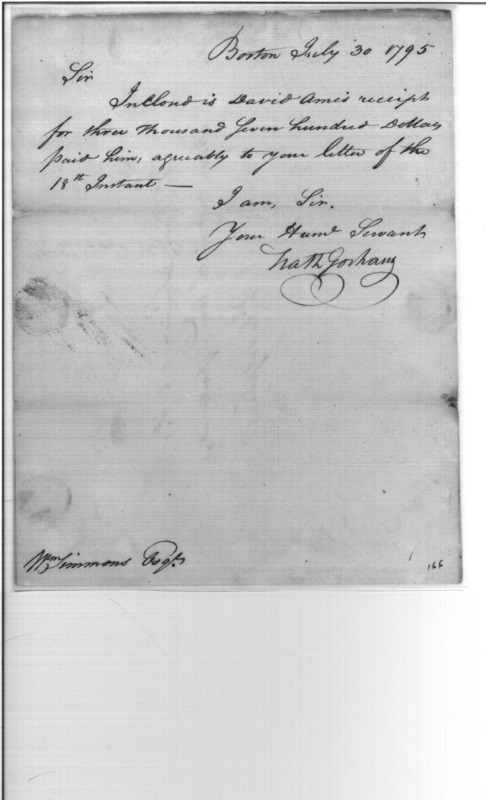 Boston July 30 1795
Sir
Inclosd is David Ames receipt
for three thousand Seven hundred Dollars
paid him, agreeably to your letter of the
18th Instant —
I am, Sir.
Your Hume Servant
Nath Gorham
Wm Simmons Esqr.
166